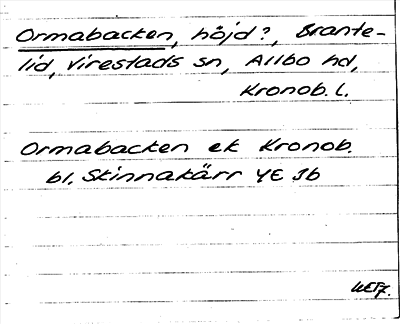 Ormabacken, höjd?, Brante-
lid, Virestads sn, Allbo hd,
Kronob. l.
Ormabacken ek Kronob.
bl. Skinnakärr YE Jb